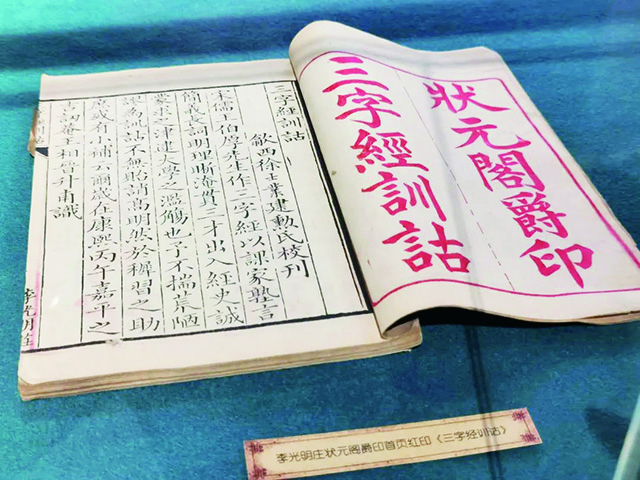 狀元閣爵印
三字經訓詁
三字經訓詁
歙西徐士業建勳氏校刊
宋儒王伯厚先生作三字經以課家塾言
簡義長詞明理晰淹貫三才出入經史誠
蒙求之津逮大學之濫觴也予不揣荒陋
謬為訓詁不無貽誚高明然於稺習之助
庶或有小補云爾歲在康熙丙午嘉平之
吉訒菴王相晉升甫識
李光明莊
李光明庄状元阁爵印首页红印《三字经训诂》